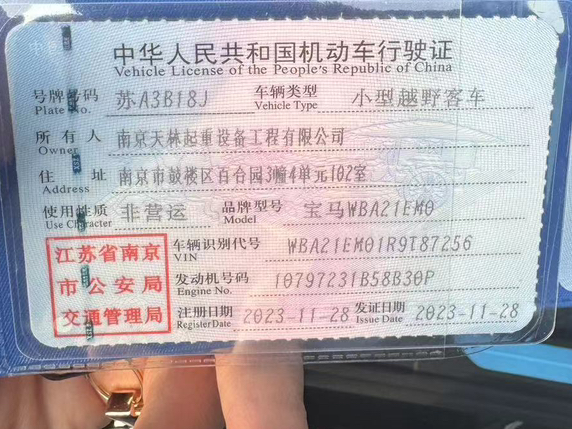 中华人民共和国机动车行驶证
Vehicle License of the People's Republic of China
号牌号码 Plate No. 苏A3B18J 车辆类型 Vehicle Type 小型越野客车
所有人 Owner 南京天林起重设备工程有限公司
住址 Address 南京市鼓楼区百合园3幢4单元102室
使用性质 Use Character 非营运 品牌型号 Model 宝马WBA21EM0
江苏省南京市公安局交通管理局
车辆识别代号 VIN WBA21EM01R9T87256
发动机号码 Engine No. 10797231B58B30P
注册日期 Register Date 2023-11-28 发证日期 Issue Date 2023-11-28